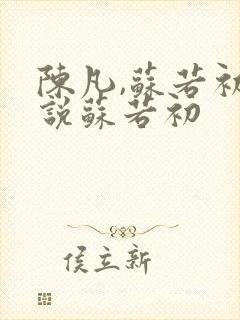 陳凡,蘇若初
說蘇若初
侯立新